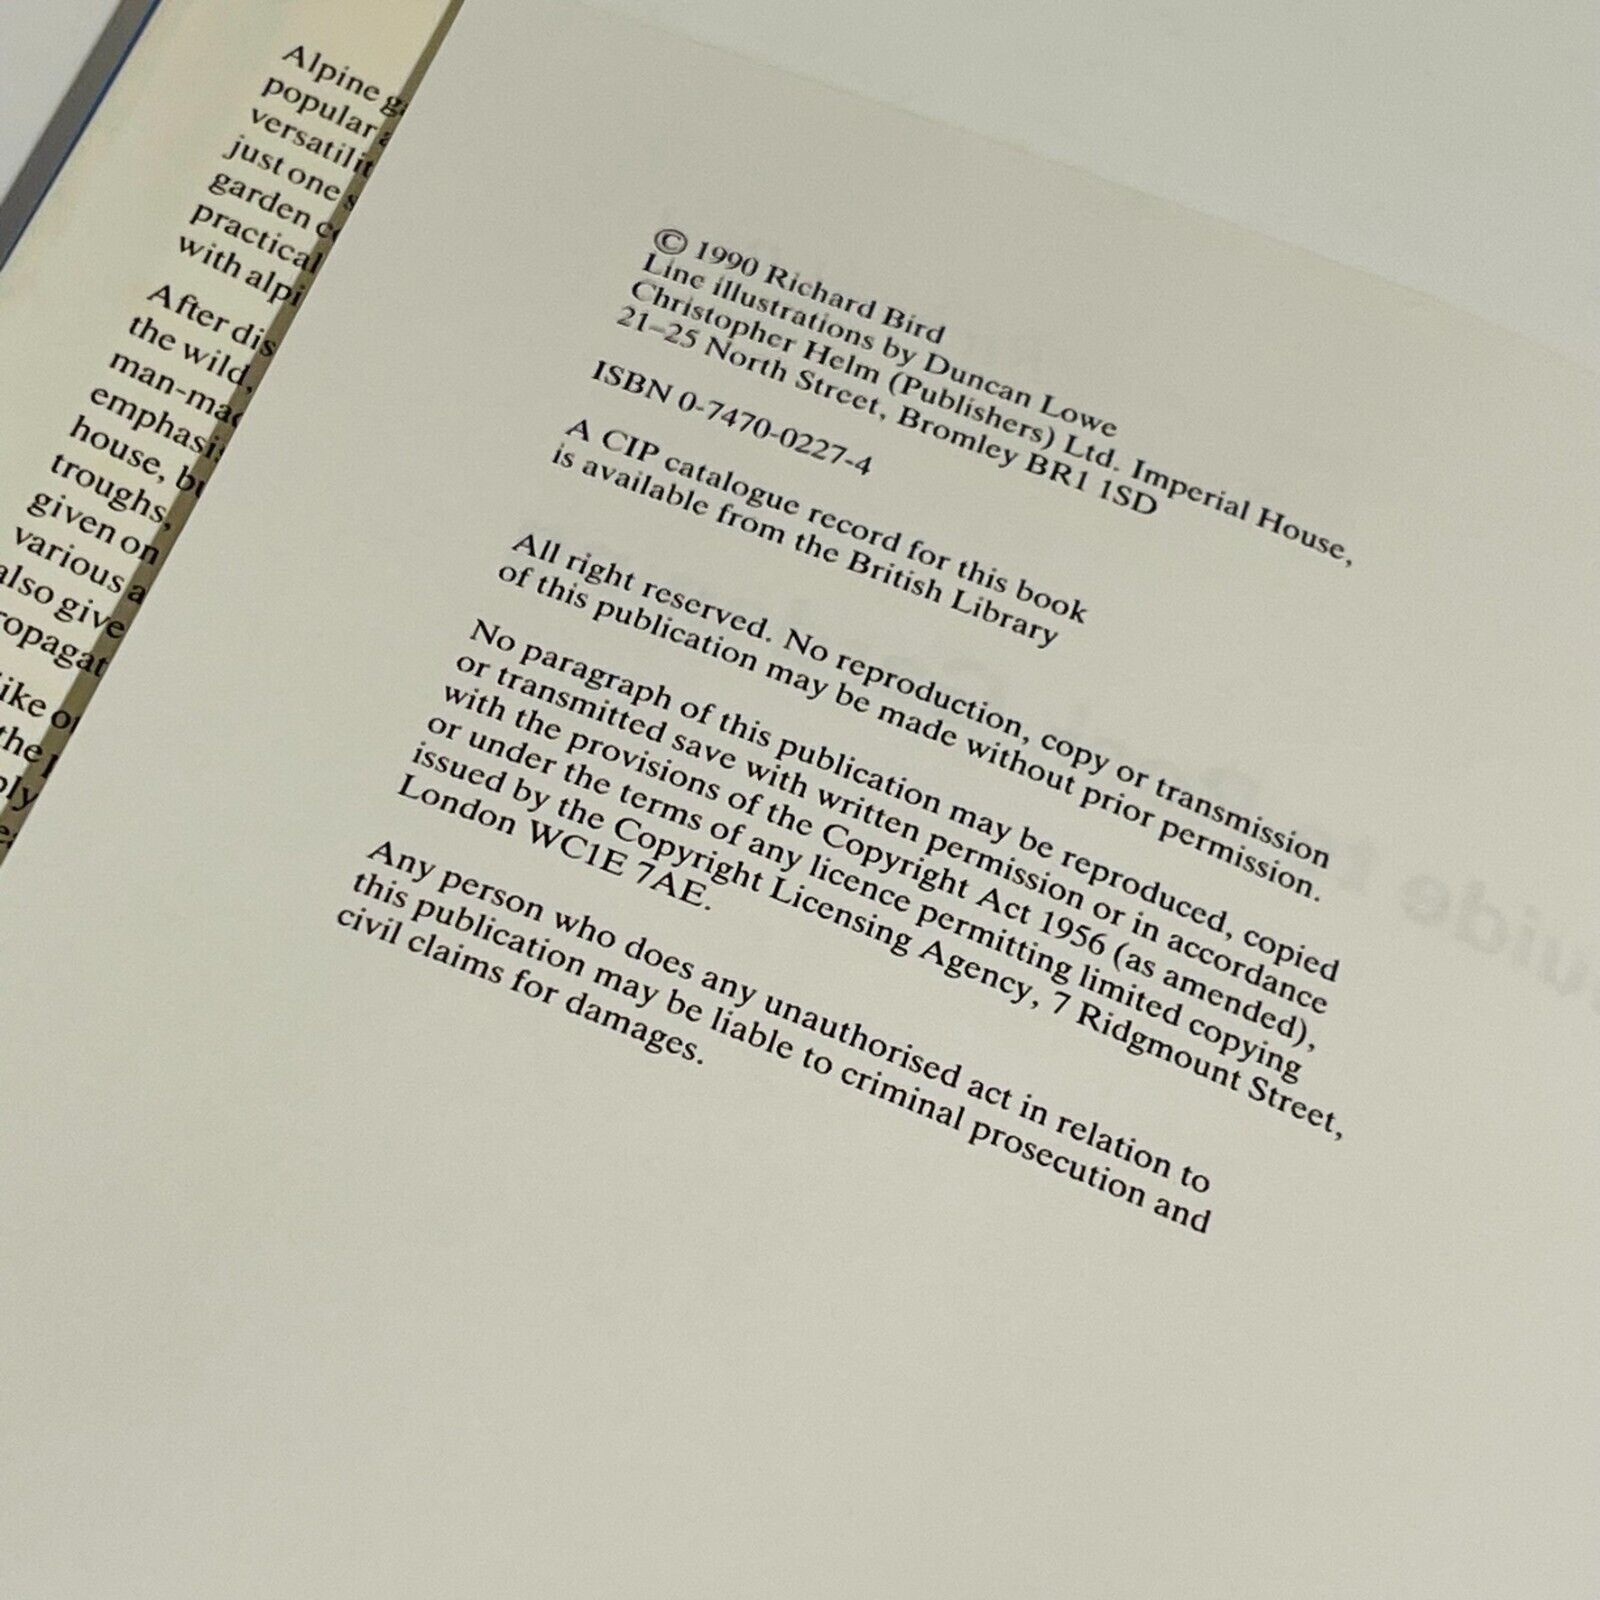 Alpine
popular
versatilit
just one
garden
practical
with alpi
After dis
the wild,
man-mad
emphasi
house, bu
troughs,
given on
various a
also give
ropagat
ike
the
ply
© 1990 Richard Bird
Line illustrations by Duncan Lowe
Christopher Helm (Publishers) Ltd. Imperial House,
21–25 North Street, Bromley BR1 1SD
ISBN 0-7470-0227-4
A CIP catalogue record for this book
is available from the British Library
All right reserved. No reproduction, copy or transmission
of this publication may be made without prior permission.
No paragraph of this publication may be reproduced, copied
or transmitted save with written permission or in accordance
with the provisions of the Copyright Act 1956 (as amended),
or under the terms of any licence permitting limited copying
issued by the Copyright Licensing Agency, 7 Ridgmount Street,
London WC1E 7AE.
Any person who does any unauthorised act in relation to
this publication may be liable to criminal prosecution and
civil claims for damages.